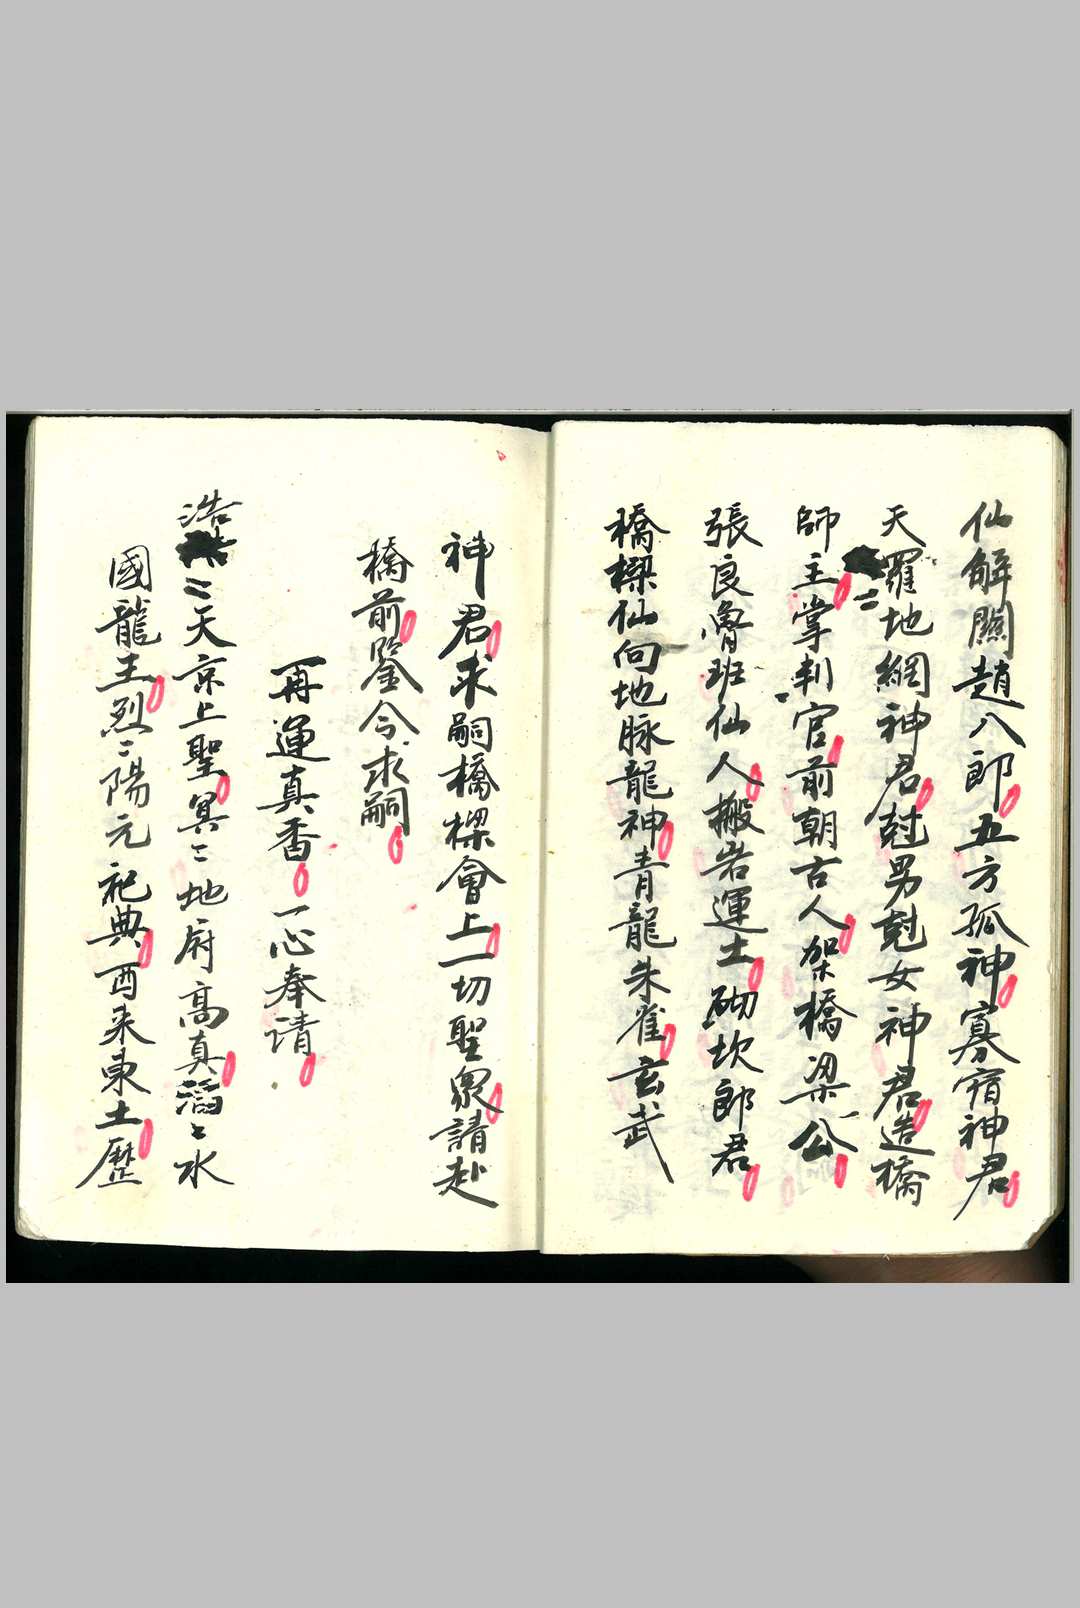 仙解關趙八郎五方孤神寡宿神君
天羅地網神君尅男尅女神君造橋
師主掌判官前朝古人架橋梁公
張良魯班仙人搬岩運土砌坎郎君
橋樑仙向地脉龍神青龍朱雀玄武
神君求嗣橋樑會上一切聖眾請赴
橋前鑒今求嗣
再運真香一心奉请
浩〻天京上聖冥〻地府高真滔〻水
國龍王烈〻陽元祀典酉来東土歷